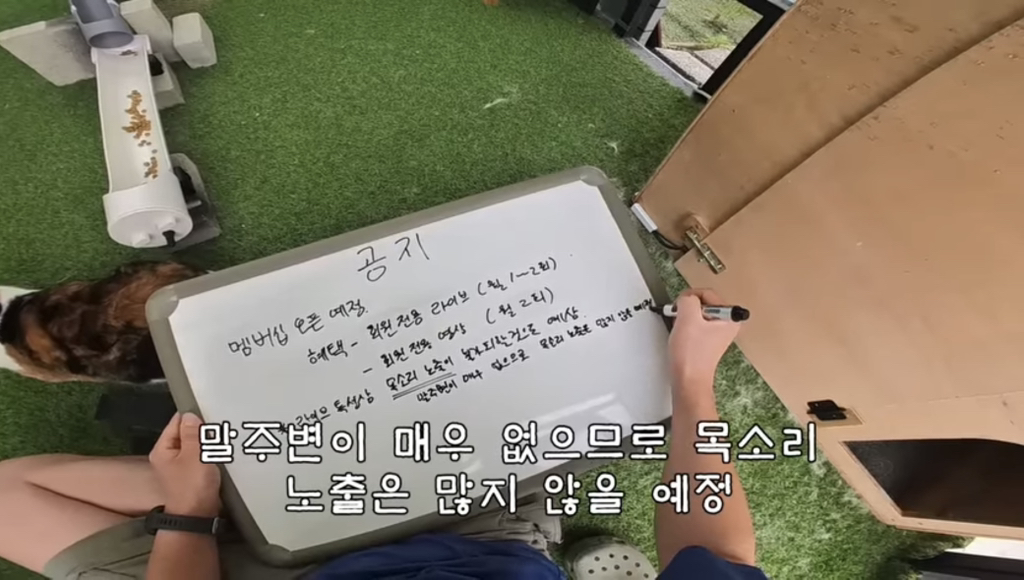 공지
멤버십 오픈 예정
혜택 - 회원전용 라이브 (월 1~2회)
- 회원전용 영상 (월 2회)
특성상 목소리 노출이 불가피할것으로 예상
말주변이 매우 없으므로 목소리 노출은 많지 않을 예정
말주변이 매우 없으므로 목소리
노출은 많지 않을 예정